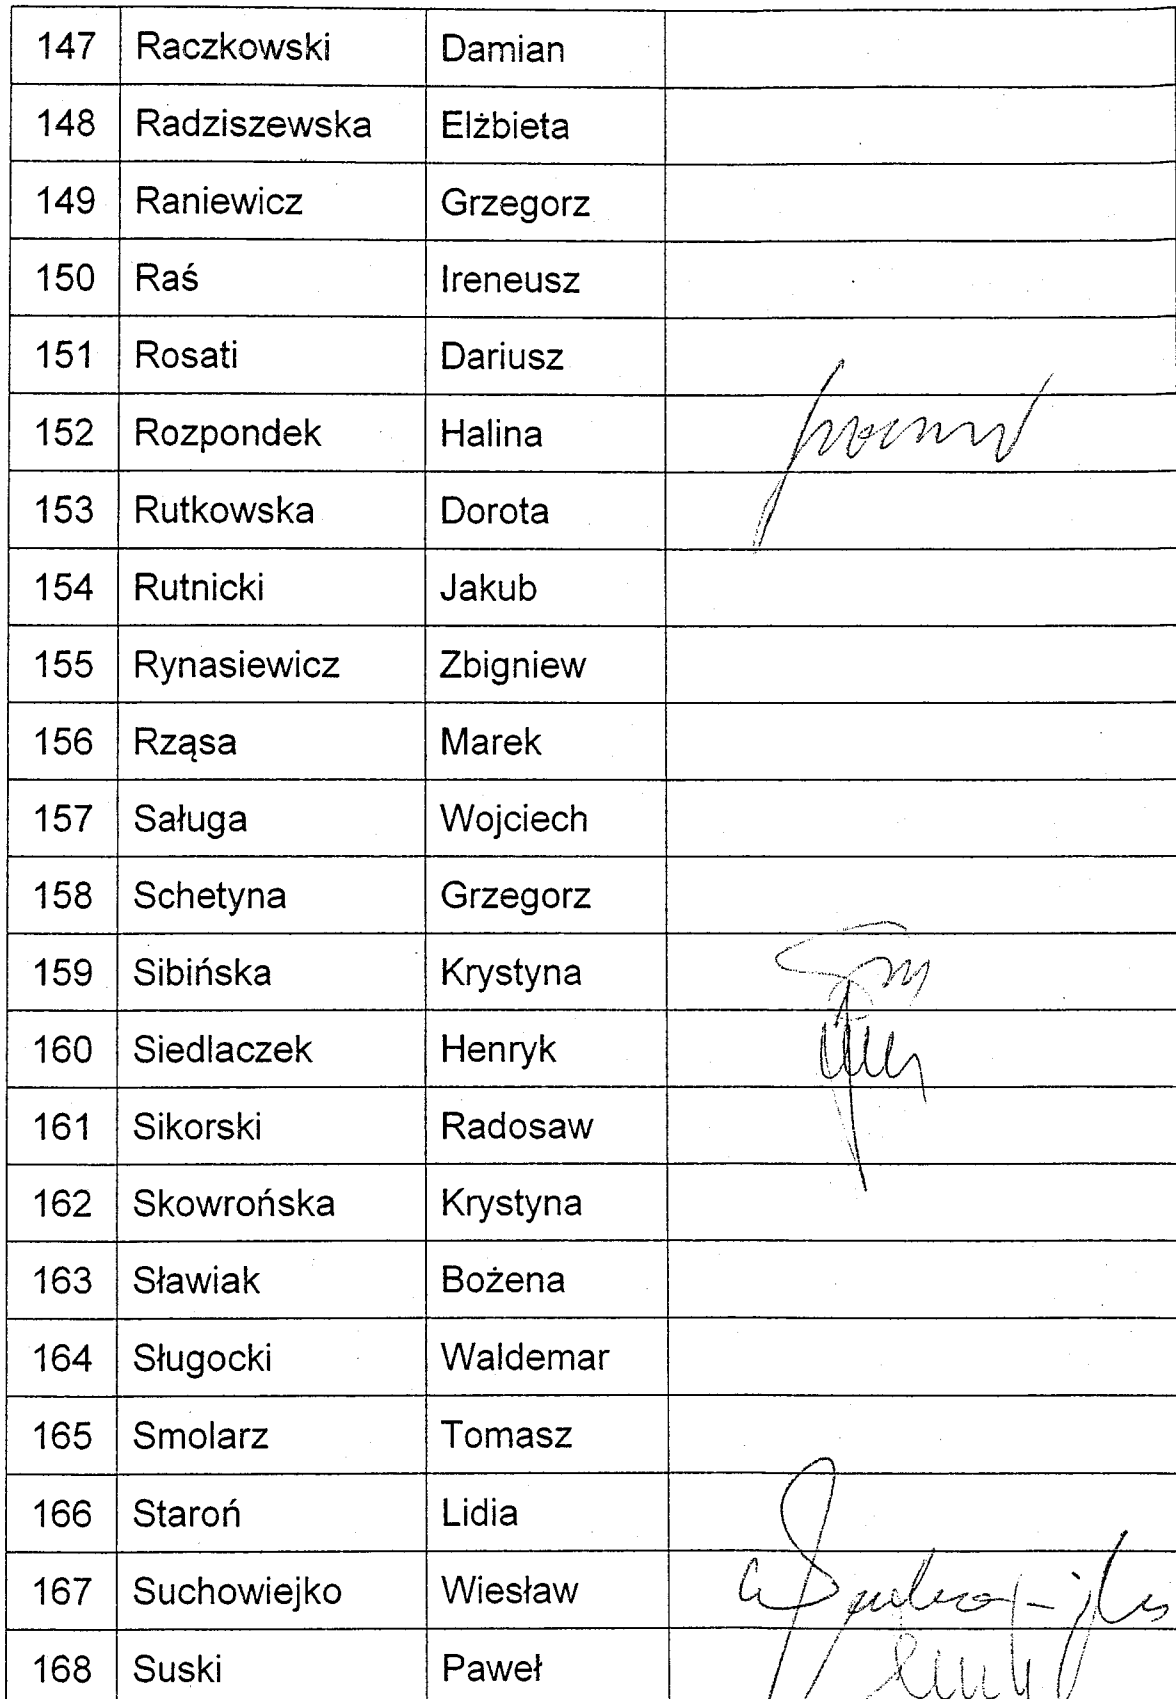 147 Raczkowski Damian
148 Radziszewska Elżbieta
149 Raniewicz Grzegorz
150 Raś Ireneusz
151 Rosati Dariusz
152 Rozpondek Halina
153 Rutkowska Dorota
154 Rutnicki Jakub
155 Rynasiewicz Zbigniew
156 Rząsa Marek
157 Saługa Wojciech
158 Schetyna Grzegorz
159 Sibińska Krystyna
160 Siedlaczek Henryk
161 Sikorski Radosaw
162 Skowrońska Krystyna
163 Sławiak Bożena
164 Sługocki Waldemar
165 Smolarz Tomasz
166 Staroń Lidia
167 Suchowiejko Wiesław
168 Suski Paweł